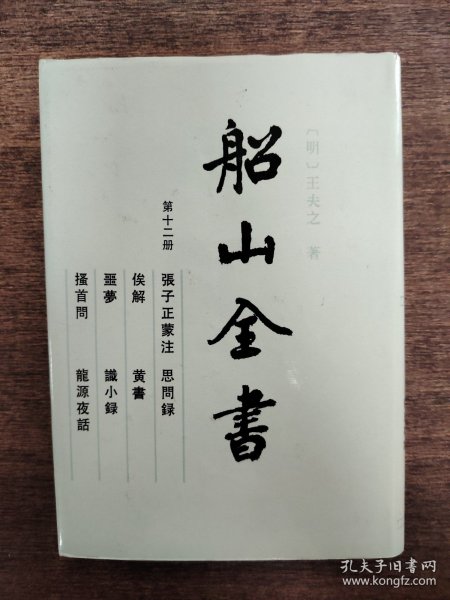 〔明〕王夫之 著
船山全書
第十二册
張子正蒙注 思問録
俟解 黄書
噩夢 識小録
搔首問 龍源夜話
孔夫子旧书网
www.kongfz.com